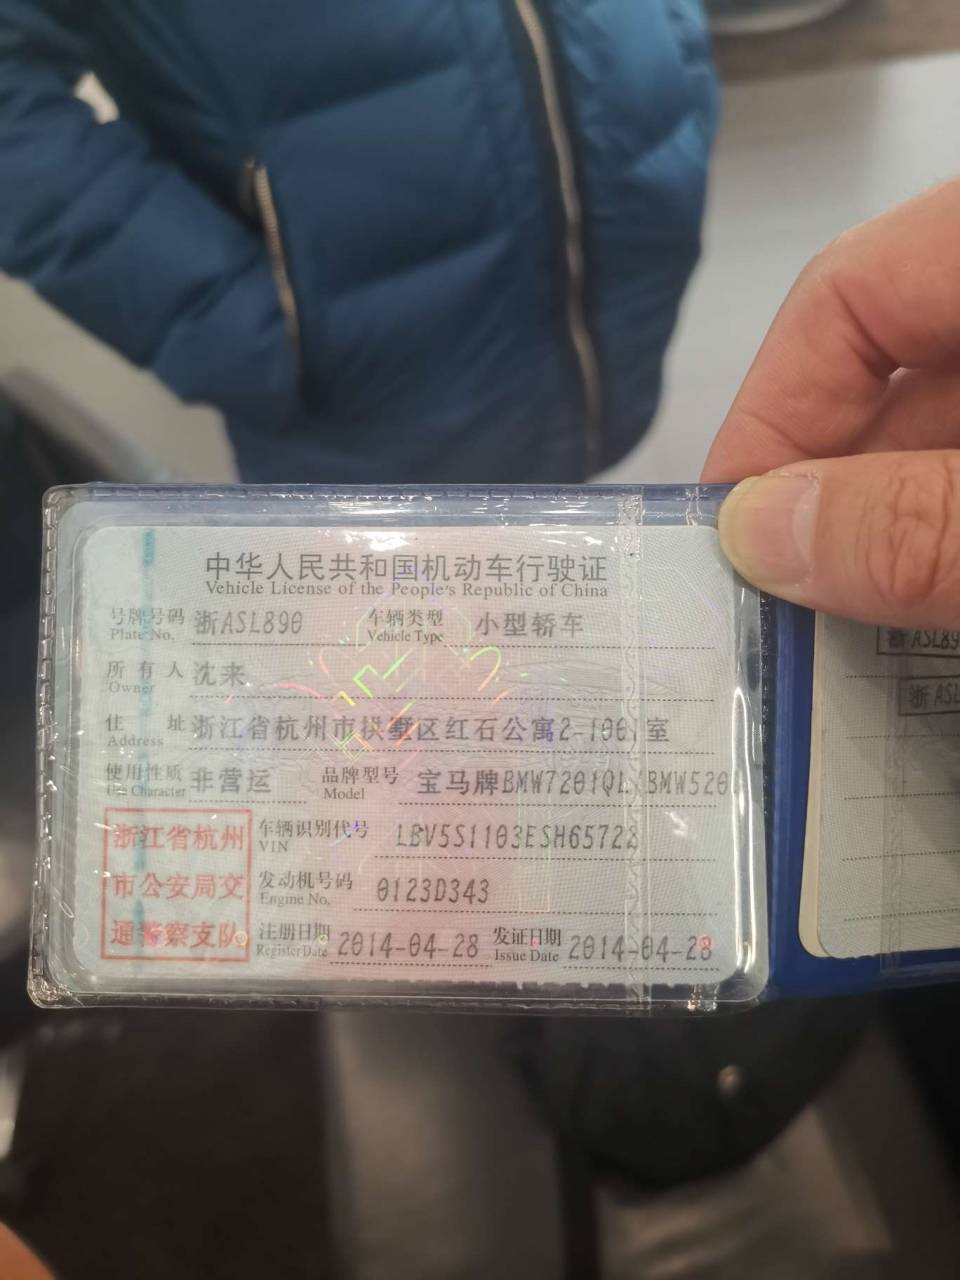 中华人民共和国机动车行驶证
Vehicle License of the People's Republic of China
号牌号码 浙ASL890 车辆类型 小型轿车
Plate No. Vehicle Type
所有人 沈来
Owner
住址 浙江省杭州市拱墅区红石公寓2-1001室
Address
使用性质 非营运 品牌型号 宝马牌BMW7201QL/BMW520
Use Character Model
浙江省杭州 车辆识别代号 LBV5S1103ESH65722
VIN
市公安局交 发动机号码 0123D343
Engine No.
通警察支队 注册日期 2014-04-28 发证日期 2014-04-28
Register Date Issue Date
浙ASL89
浙ASL